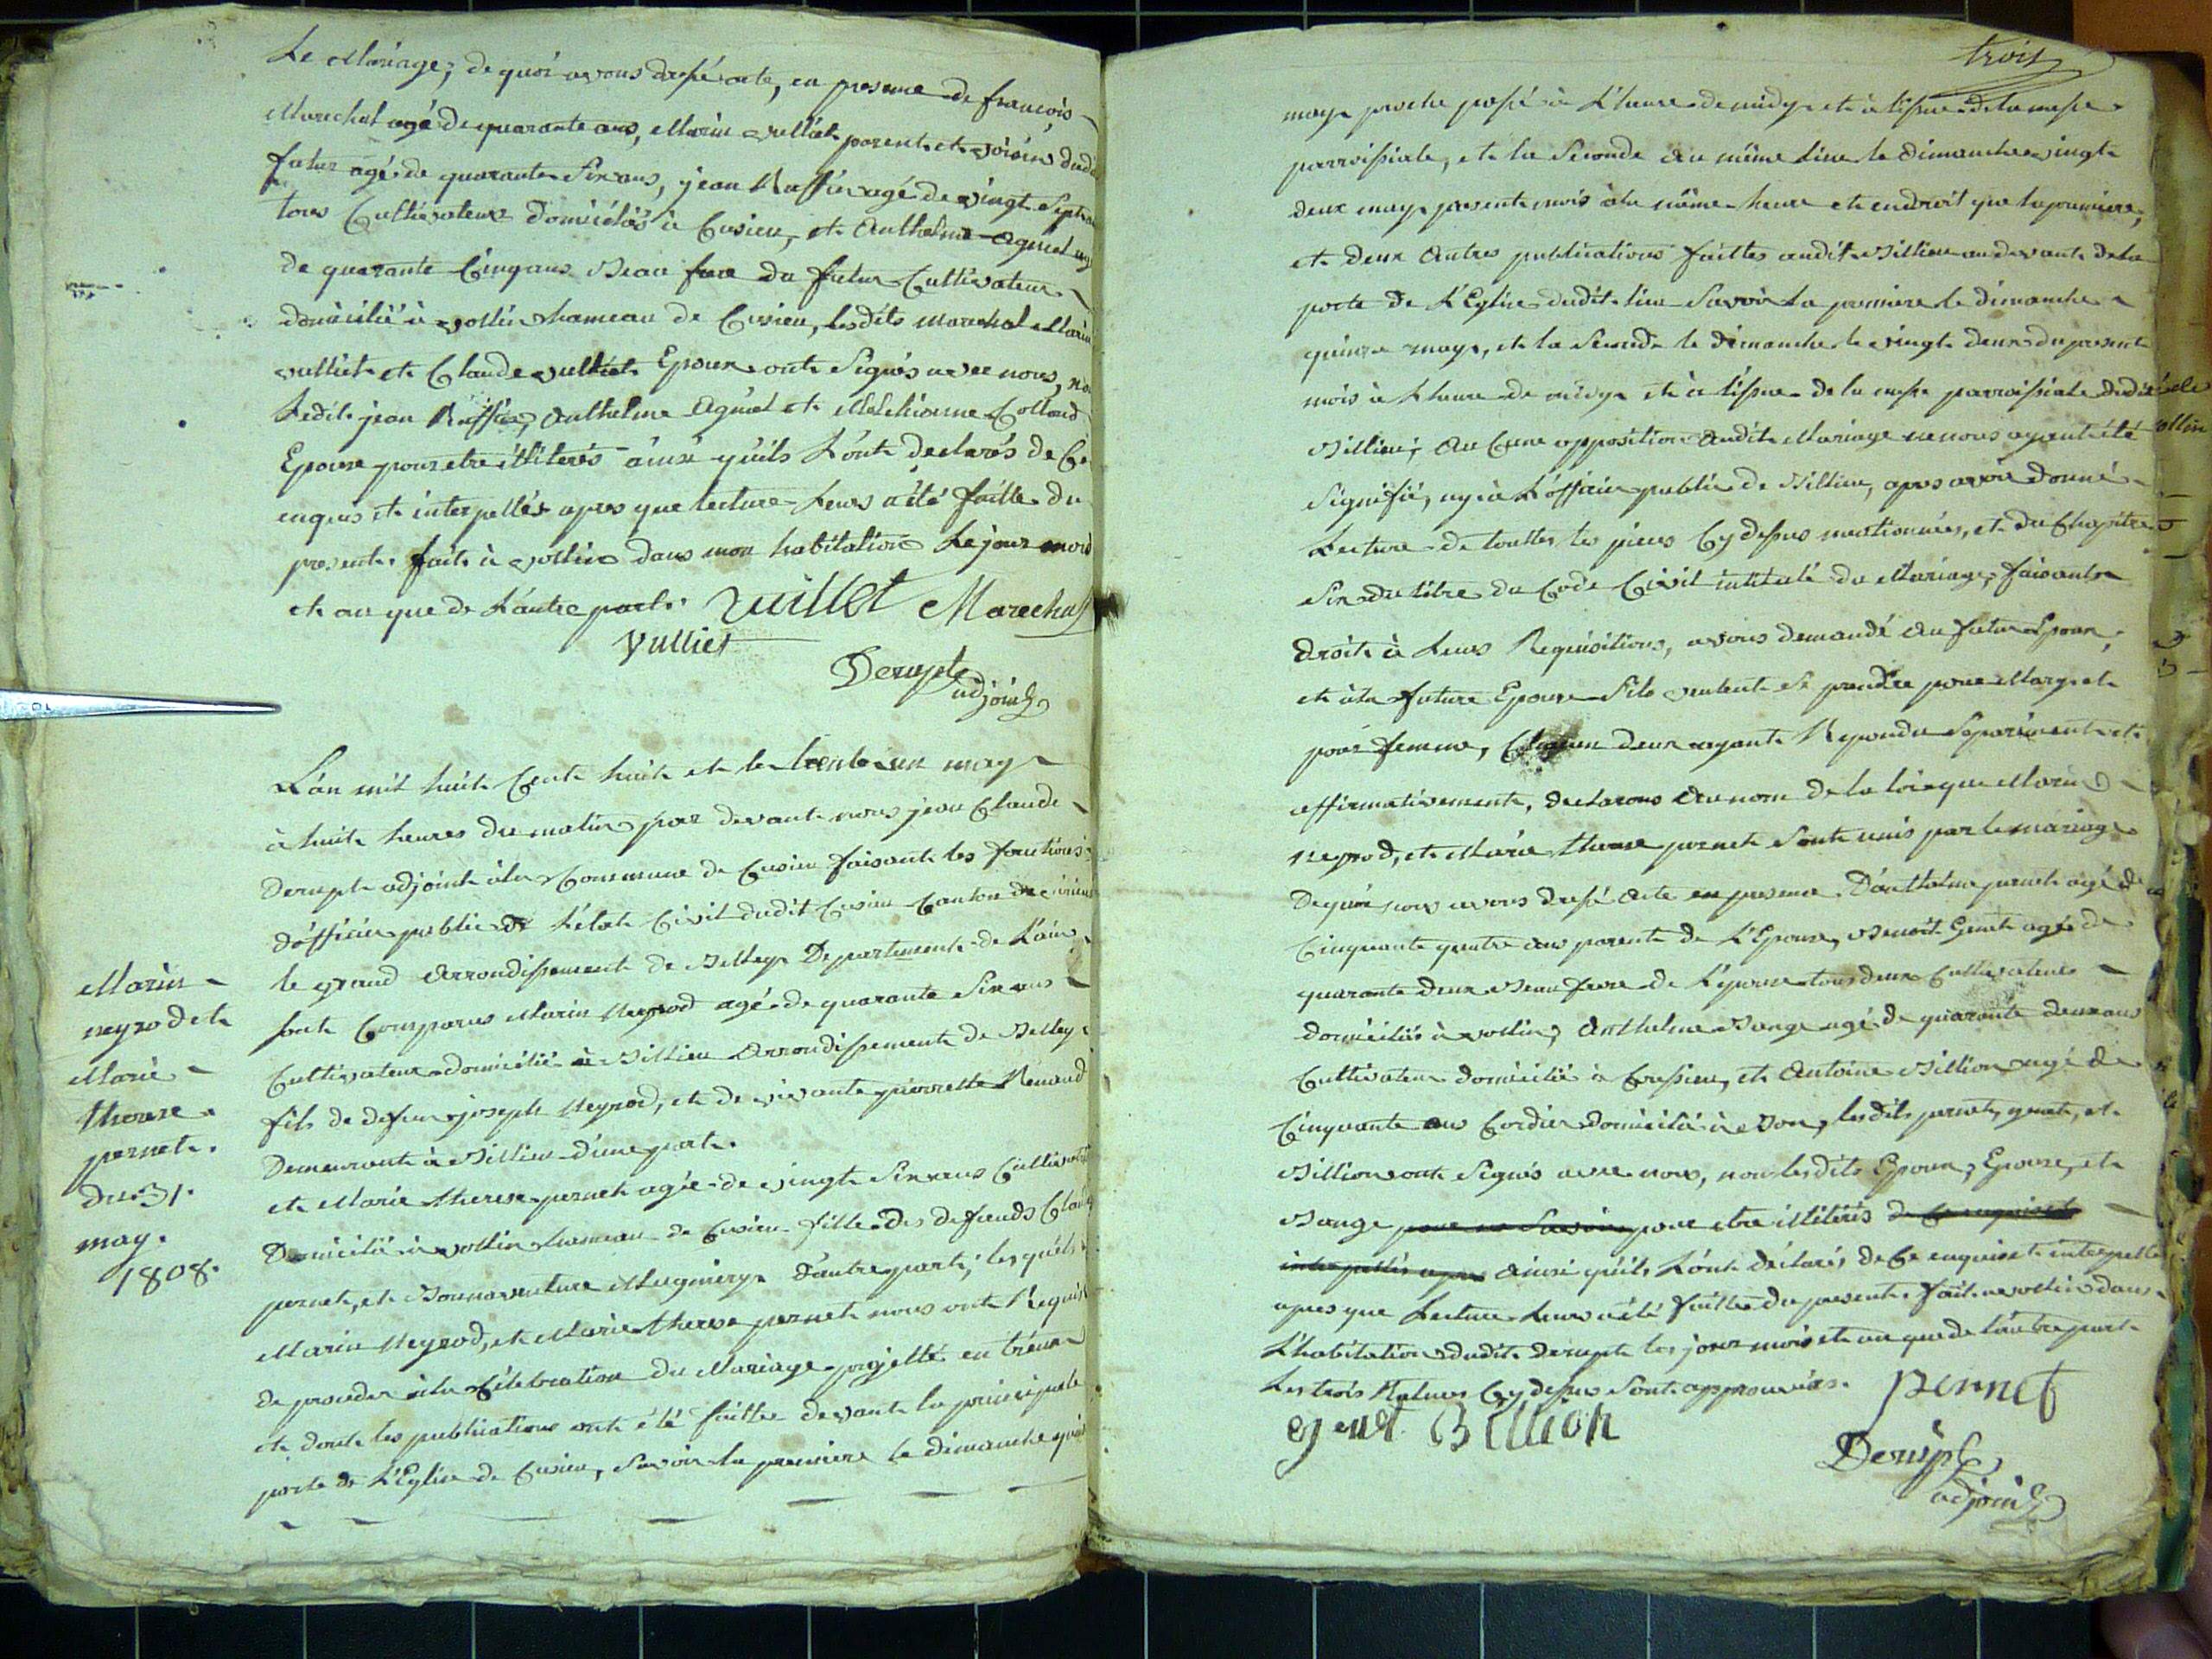 Le Mariage; de quoi avons dressé acte, en presence de françois
Marechal agé de quarante ans, Marin vulliet parent et voisin dudit
futur agé de quarante six ans, jean Ruffin agé de vingt sept
tous Cultivateurs domiciliés à Cusieu, et Anthelme Agniel
de quarante Cinq ans Beau frere du futur Cultivateur
domicilié à vollin hameau de Cusieu, lesdits marechal Marin
vulliet et Claude vulliet Epoux ont signés avec nous, non
Ledit jean Ruffin, Anthelme Agniel et Melchionne Colland
Epouse pour etre illiterés ainsi qu'ils L'ont declarés de Ce
enquis et interpellés apres que lecture leurs a été faitte du
present. fait à vollin dans mon habitation Le jour mois
et an que de L'autre part. vuillet Marechal
vulliet
Derupt
adjoint
L'an mil huit Cent huit et le trente un may
à huit heures du matin par devant nous jean Claude
Derupt adjoint à la Commune de Cusieu faisant les fonctions
d'officier public de L'etat Civil dudit Cusieu Canton de virieu
le grand Arrondissement de Belley Departement de L'ain
sont Comparus Marin Neyrod agé de quarante six ans
Cultivateur domicilié à Billieu Arrondissement de Belley
fils de defeu joseph Neyrod, et de vivante pierrette Renaud
Demeurante à Billieu d'une part.
et Marie therese pernet agée de vingt six ans Cultivatrice
Domicilié à vollin hameau de Cusieu fille des defunds Claude
pernet, et Bonnaventure Mugniery d'autre part; lesquels
Marin Neyrod, et Marie therese pernet nous ont Requis
de proceder à la Célébration du Mariage projetté entre eux
et dont les publications ont été faittes devant la principale
porte de L'Eglise de Cusieu, savoir la premiere le dimanche quinze
Marin
neyrod et
Marie
therese
pernet.
du 31.
may.
1808.
trois
may proche passé à L'heure de midy et à l'issue de la messe
parroissiale, et la seconde au même lieu le dimanche vingt
deux may present mois à la même heure et endroit que la premiere,
et deux Autres publications faittes audit Billieu au devant de la
porte de L'Eglise dudit lieu savoir la premiere le dimanche
quinze may, et la seconde le dimanche le vingt deux du present
mois à L'heure de midy et à l'issue de la messe parroissiale dudit
Billieu; Aucune opposition Audit Mariage ne nous ayant été
signifié, ny à L'officier public de Billieu, apres avoir donné
Lecture de touttes les pieces Cy dessus mentionnées, et du Chapitre
six du titre du Code Civil intitulé du Mariage, faisant
droit à Leurs Requisitions, avons demandé au futur Epoux,
et à la future Epouse s'ils veulent se prendre pour Mary et
pour femme, Chacun d'eux ayant Repondu separément et
affirmativement, declarons Au nom de la loi que Marin
neyrod, et Marie therese pernet sont unis par le mariage
De quoi nous avons dressé Acte en presence D'anthelme pernet agé de
Cinquante quatre ans parent de L'Epouse, Benoit Genet agé de
quarante deux Beau frere de L'epouse tous deux Cultivateurs
domiciliés à vollin, Anthelme Bange agé de quarante deux ans
Cultivateur domicilié à Cressieu, et Antoine Billion agé de
Cinquante ans Cordier domicilié à Bon, lesdits pernet, genet, et
Billion ont signés avec nous, non lesdits Epoux, Epouse, et
Bange pour ne savoir pour etre illiterés de Ce enquis et
interpellés apres ainsi qu'ils L'ont déclarés de Ce enquis et interpellés
apres que Lecture leurs a été faitte du present. fait à vollin dans
L'habitation dudit derupt les jour mois et an que de L'autre part
Les trois Ratures Cy dessus sont approuvées. pernet
genet Billion
Derupt
adjoint